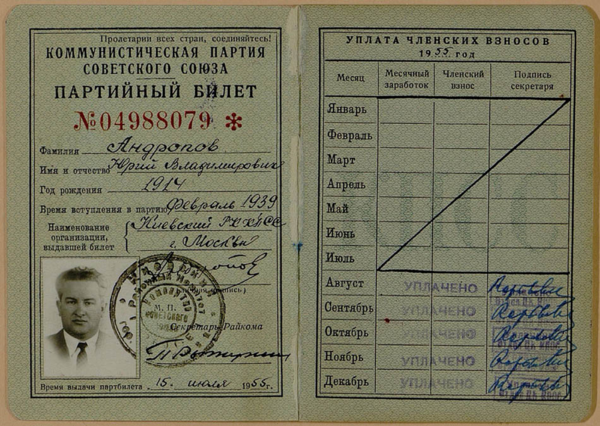 Пролетарии всех стран, соединяйтесь!
КОММУНИСТИЧЕСКАЯ ПАРТИЯ
СОВЕТСКОГО СОЮЗА
ПАРТИЙНЫЙ БИЛЕТ
№04988079 *
Фамилия Андропов
Имя и отчество Юрий Владимирович
Год рождения 1914
Время вступления в партию февраль 1939
Наименование
организации,
выдавшей билет
Киевский РК КПСС
г. Москвы
М. П.
Секретарь Райкома
Время выдачи партбилета 15. июля 1955 г.
УПЛАТА ЧЛЕНСКИХ ВЗНОСОВ
1955 год
Месяц
Месячный
заработок
Членский
взнос
Подпись
секретаря
Январь
Февраль
Март
Апрель
Май
Июнь
Июль
Август УПЛАЧЕНО
Сентябрь УПЛАЧЕНО
Октябрь УПЛАЧЕНО
Ноябрь УПЛАЧЕНО
Декабрь УПЛАЧЕНО